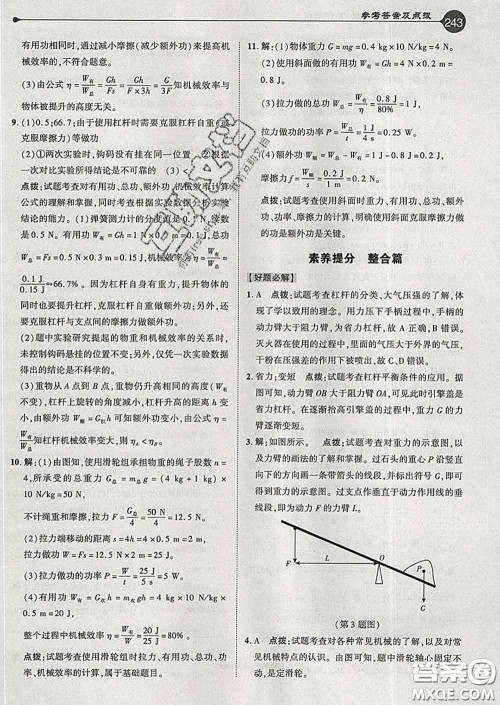 参考答案及点拨 243
有用功相同时,通过减小摩擦(减少额外功)来提高机
械效率的,不符合题意。
(3)由公式 η = W有/W总 = Gh/Fs = Gh/(F×3h) = G/3F 知机械效率与
物体被提升的高度无关。
9. (1)0.5;66.7;由于使用杠杆时需要克服杠杆自重(或
克服摩擦力)等做功
(2)①两次实验时,钩码没有挂在同一位置 ②根据一
次对比实验所得结论是不可靠的
点拨:试题考查对有用功、总功、额外功、机械效率计算
公式的理解和掌握,同时考查根据实验数据分析实验
结论的能力。(1)弹簧测力计的分度值是
数是0.5 N。有用功 W有 = Gh = 1.0 N × 0.1 m = 0.1 J,
总功 W总 = Fs = 0.5 N × 0.3 m = 0.15 J,机械效率 η =
W有/W总 = 0.1 J/0.15 J ≈ 66.7%。因为杠杆自身有重力,提升物体的
同时也要提升杠杆,杠杆自重做额外功;另外,还要
克服杠杆与支点间的摩擦力做额外功。
(2)题中实验研究提起的物重和机械效率的关系,未
控制钩码悬挂的位置不变;另外,仅用一次实验数据
得出结论不可靠。
(3)重物从 A 点到 B 点,重物仍升高相同高度(W有
不变),杠杆上旋转的角度减小,杠杆自重和摩擦等所
做的功减小,即额外功减小,因此,由公式 η = W有/W总 可
知杠杆机械效率变大,则 ηA < ηB。
10. 解:(1)由图知,使用滑轮组承担物重的绳子股数 n =
4,所受的总重力 G总 = G + G动 = (4 kg + 1 kg) ×
10 N/kg = 50 N,
不计绳重和摩擦,拉力 F = G总/4 = 50 N/4 = 12.5 N。
(2)拉力端移动的距离 s = 4h = 4 × 0.5 m = 2 m,
拉力做功 W = Fs = 12.5 N × 2 m = 25 J。
(3)拉力做功的功率 P = W/t = 25 J/5 s = 5 W。
(4)有用功 W有 = Gh = 4 kg × 10 N/kg × 0.5 m =
20 J,
整个过程中机械效率 η = W有/W总 = 20 J/25 J = 80%。
点拨:试题考查使用滑轮组时拉力、功、功率、机械效
率的计算,属于基础题目。
10. 解:(1)物体重力 G = mg = 0.4 kg × 10 N/kg = 4 N。
(2)使用斜面做的有用功 W有 = Gh = 4 N × 0.2 m =
0.8 J。
(3)拉力做的总功 W总 = W有/η = 0.8 J/80% = 1 J,
拉力的功率 P = W总/t = 1 J/4 s = 0.25 W。
(4)额外功 W额 = W总 - W有 = 1 J - 0.8 J = 0.2 J,
摩擦力 f = W额/s = 0.2 J/1 m = 0.2 N。
点拨:试题考查使用斜面时重力、有用功、总功、额外
功、功率、摩擦力的计算,明确使用斜面克服摩擦力做
的功是额外功是关键。
素养提分 整合篇
【好题必解】
1. A 点拨:试题考查杠杆的分类、大气压强的了解,体现
了学以致用的理念。用力压下手柄过程中,手柄的
动力臂大于阻力臂,为省力杠杆,故 A 正确,B 错误。
灭火器在使用过程中,里面的气压大于外面气压,由
于粉在压强差的作用下喷出,故 C、D 错误。
2. 省力;变短 点拨:试题考查杠杆平衡条件的应用。图
中动力臂 OB 大于阻力臂 OA,可见该杠杆为省力杠
杆;在缓慢抬高引擎盖的过程中,重力 G 的力
臂逐渐变短。
3. 解:如图所示。 点拨:试题考查对重力的示意图,以
及力臂的画法的了解和掌握。过石头的重心 P 沿竖直
向下的方向画一条带箭头的线段,并标出符号 G,即
为重力示意图;过支点 O 作垂直于动力作用线的垂
线段,即为动力 F 的力臂 L。
F L O P G
(第3题图)
4. A 点拨:试题考查对各种常见机械的了解,以及对常
见机械特点的认识。由于题中滑轮轴心固定不动,是
定滑轮。
答案圈
MXQE.COM